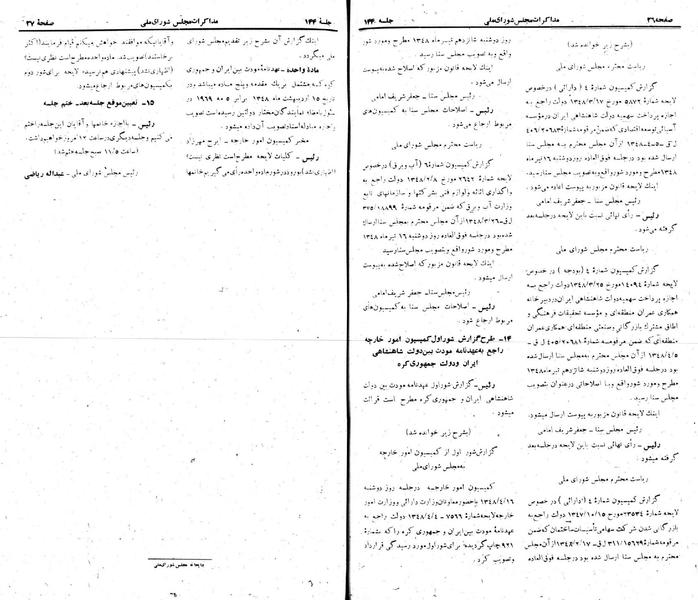 صفحه ۳۶
مذاکرات مجلس شورای ملی
جلسه ۱۴۴
(بشرح زیر خوانده شد)
ریاست محترم مجلس شورای ملی
گزارش کمیسیون شماره ۴ (دارائی) درخصوص
لایحه شماره ۵۸۷۲ مورخ ۱۳۴۸/۳/۱۷ دولت راجع به
اجازه پرداخت سهمیه دولت شاهنشاهی ایران در مؤسسه
آسیائی توسعه اقتصادی که ضمن مرقومه شماره
محترم به مجلس سنا
ارسال شده بود در جلسه فوق‌العاده روز دوشنبه ۱۶ تیر ماه
۱۳۴۸ مطرح و مورد شور واقع و به تصویب مجلس سنا رسید.
اینک لایحه قانون مزبور به پیوست ایفاد میشود.
رئیس مجلس سنا - جعفر شریف امامی
رئیس - رأی نهائی نسبت باین لایحه در جلسه بعد
گرفته میشود.
ریاست محترم مجلس شورای ملی
گزارش کمیسیون شماره ۴ (بودجه) در خصوص
لایحه شماره ۱۴۰۹۴ مورخ ۱۳۴۸/۳/۲۵ دولت راجع به
اجازه پرداخت سهمیه دولت شاهنشاهی ایران در دبیرخانه
همکاری عمران منطقه‌ای و مؤسسه تحقیقات فرهنگی و
اطاق مشترک بازرگانی و صنعتی منطقه‌ای همکاری عمران
منطقه‌ای که ضمن مرقومه شماره ۴۰۵/۲۰۶۸۱ ل.ق -
۱۳۴۸/۴/۵ از آن مجلس محترم به مجلس سنا ارسال شده
بود در جلسه فوق‌العاده روز دوشنبه شانزدهم تیر ماه ۱۳۴۸
مطرح و مورد شور واقع و با اصلاحاتی در عنوان به تصویب
مجلس سنا رسید.
اینک لایحه قانون مزبور به پیوست ارسال میشود.
رئیس مجلس سنا - جعفر شریف امامی
رئیس - رأی نهائی نسبت باین لایحه در جلسه بعد
گرفته میشود.
ریاست محترم مجلس شورای ملی
گزارش کمیسیون شماره ۴ (دارائی) در خصوص
لایحه شماره ۲۳۵۳۴ مورخ ۱۳۴۷/۱۰/۱۵ دولت راجع به
بازرگانی شدن شرکت سهامی تأسیسات ساختمان که ضمن
مرقومه شماره ۳۱۱/۱۵۶۲۹ ل.ق - از آن مجلس
محترم به مجلس سنا ارسال شده بود در جلسه فوق‌العاده
روز دوشنبه شانزدهم تیر ماه ۱۳۴۸ مطرح و مورد شور
واقع و به تصویب مجلس سنا رسید.
اینک لایحه قانون مزبور که اصلاح شده به پیوست
ایفاد میشود.
رئیس مجلس سنا - جعفر شریف امامی
رئیس - اصلاحات مجلس سنا به کمیسیون‌های
مربوط ارجاع می‌شود.
ریاست محترم مجلس شورای ملی
گزارش کمیسیون شماره ۶ (آب و برق) در خصوص
لایحه شماره ۲۶۴۲ مورخ ۱۳۴۸/۲/۸ دولت راجع به
واگذاری اثاثه و لوازم فنی بشرکتها و سازمانهای تابع
وزارت آب و برق که ضمن مرقومه شماره ۳۷۵/۱۸۸۹۹
ل.ق - ۱۳۴۸/۳/۲۶ از آن مجلس محترم به مجلس سنا ارسال
شده بود در جلسه فوق‌العاده روز دوشنبه ۱۶ تیر ماه ۱۳۴۸
مطرح و مورد شور واقع و بتصویب مجلس سنا رسید
اینک لایحه قانون مزبور که اصلاح شده به پیوست
ارسال میشود.
رئیس مجلس سنا - جعفر شریف امامی
رئیس - اصلاحات مجلس سنا به کمیسیون‌های
مربوط ارجاع می شود.
۱۴- طرح گزارش شور اول کمیسیون امور خارجه
راجع به عهدنامه مودت بین دولت شاهنشاهی
ایران و دولت جمهوری کره
رئیس - گزارش شور اول عهدنامه مودت بین دولت
شاهنشاهی ایران و جمهوری کره مطرح است قرائت
میشود.
(بشرح زیر خوانده شد)
گزارش شور اول از کمیسیون امور خارجه
به مجلس شورای ملی
کمیسیون امور خارجه در جلسه روز دوشنبه
۱۳۴۸/۴/۱۶ با حضور معاونان وزارت دارائی و وزارت امور
خارجه لایحه شماره ۷۵۶۶ - ۱۳۴۸/۴/۴ دولت راجع به
عهدنامه مودت بین ایران و جمهوری کره را که بشماره
۹۲۱ چاپ گردیده برای شور اول مورد رسیدگی قرار داد
و تصویب کرد.
جلسه ۱۴۴
مذاکرات مجلس شورای ملی
صفحه ۳۷
اینک گزارش آن بشرح زیر تقدیم مجلس شورای
ملی میگردد.
ماده واحده - عهدنامه مودت بین ایران و جمهوری
کره که مشتمل بر یک مقدمه و پنج ماده میباشد و در
تاریخ ۱۵ اردیبهشت ماه ۱۳۴۸ برابر ۵ مه ۱۹۶۹ در
سئول بامضاء نمایندگان مختار دولتین رسیده است تصویب
و اجازه مبادله اسناد تصویب آن داده میشود.
مخبر کمیسیون امور خارجه - ایرج مهرزاد
رئیس - کلیات لایحه مطرح است نظری نیست؟
(اظهاری نشد) بورود در شور ماده واحده رأی میگیریم خانمها
و آقایانیکه موافقند خواهش میکنم قیام فرمایند (اکثر
برخاستند) تصویب شد. ماده واحده مطرح است نظری نیست؟
(اظهاری نشد) پیشنهادی هم نرسیده؛ لایحه برای شور دوم
بکمیسیون‌های مربوط ارجاع میشود.
۱۵- تعیین موقع جلسه بعد - ختم جلسه
رئیس - با اجازه خانمها و آقایان این جلسه را ختم
می‌کنیم و جلسه دیگری در ساعت ۱۲ امروز خواهیم داشت.
(ساعت ۱۱/۵ صبح جلسه ختم شد)
رئیس مجلس شورای ملی - عبداله ریاضی
چاپخانه مجلس شورای ملی